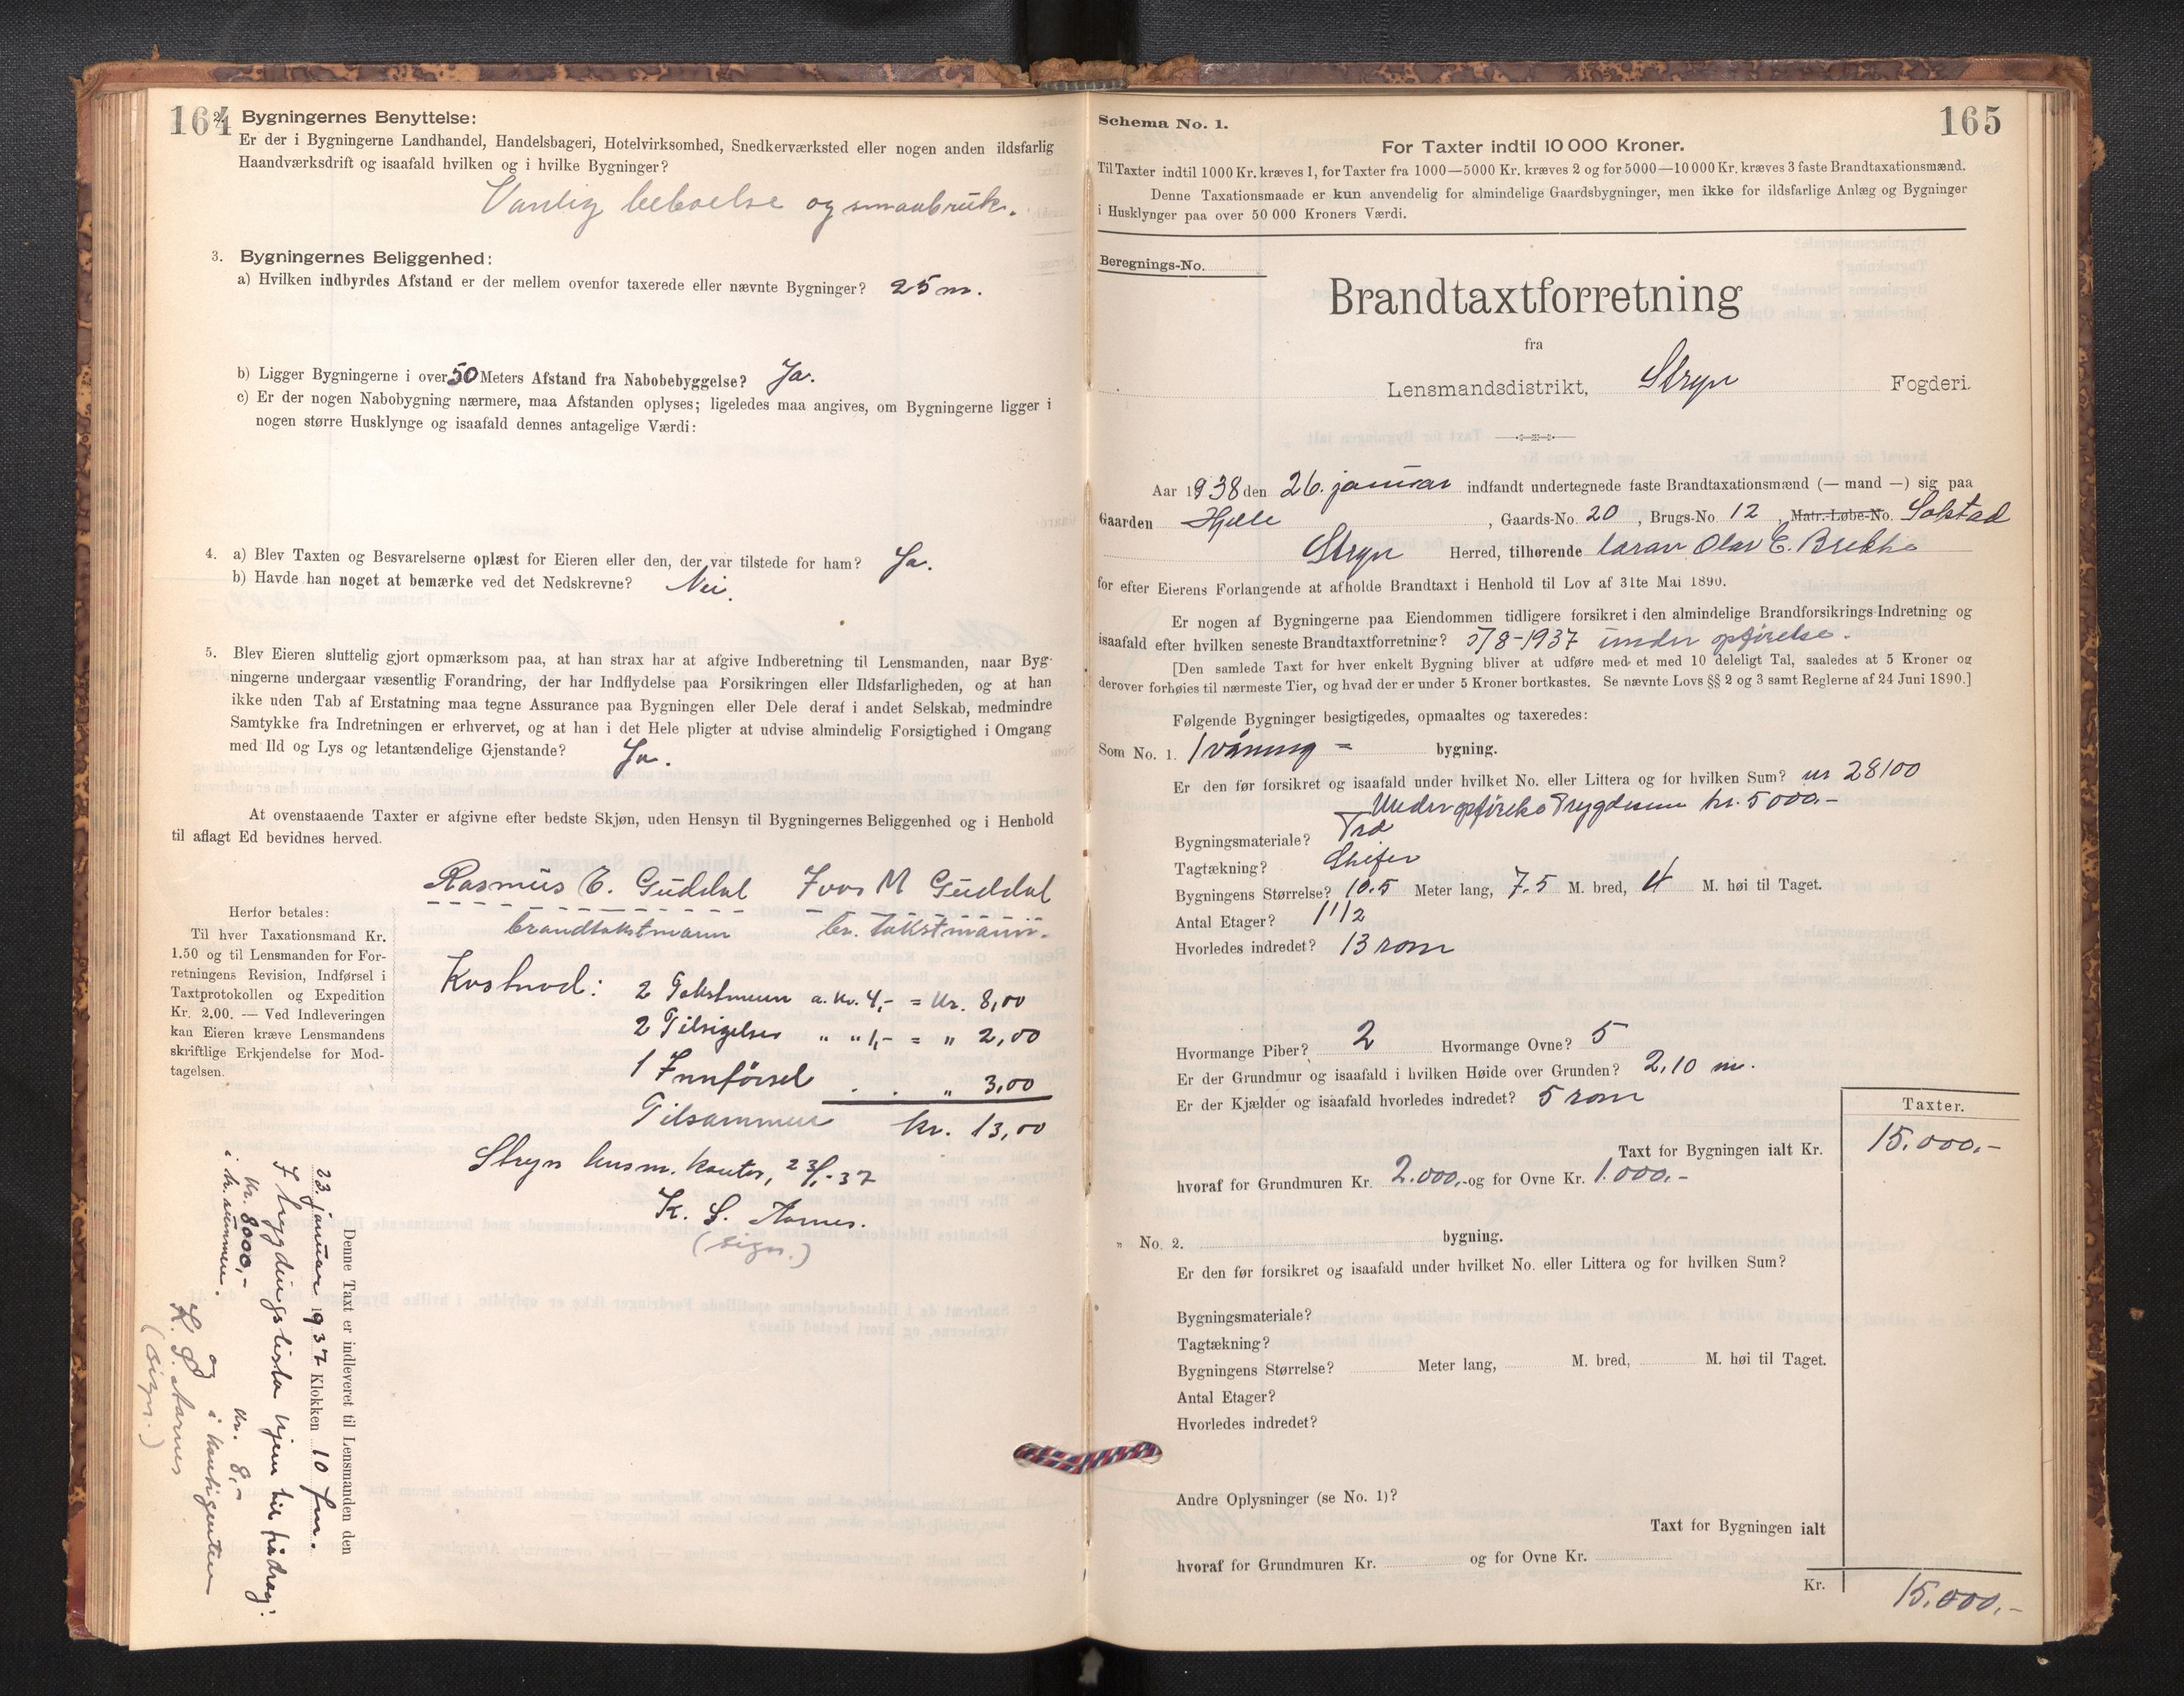 164
2. Bygningernes Benyttelse:
Er der i Bygningerne Landhandel, Handelsbageri, Hotelvirksomhed, Snedkerværksted eller nogen anden ildsfarlig
Haandværksdrift og isaafald hvilken og i hvilke Bygninger?
Vanlig beboelse og smaabruk.
3. Bygningernes Beliggenhed:
a) Hvilken indbyrdes Afstand er der mellem ovenfor taxerede eller nævnte Bygninger? 25 m.
b) Ligger Bygningerne i over 50 Meters Afstand fra Nabobebyggelse? Ja.
c) Er der nogen Nabobygning nærmere, maa Afstanden oplyses; ligeledes maa angives, om Bygningerne ligger i
nogen større Husklynge og isaafald dennes antagelige Værdi:
4. a) Blev Taxten og Besvarelserne oplæst for Eieren eller den, der var tilstede for ham? Ja.
b) Havde han noget at bemærke ved det Nedskrevne? Nei.
5. Blev Eieren sluttelig gjort opmærksom paa, at han strax har at afgive Indberetning til Lensmanden, naar Byg-
ningerne undergaar væsentlig Forandring, der har Indflydelse paa Forsikringen eller Ildsfarligheden, og at han
ikke uden Tab af Erstatning maa tegne Assurance paa Bygningen eller Dele deraf i andet Selskab, medmindre
Samtykke fra Indretningen er erhvervet, og at han i det Hele pligter at udvise almindelig Forsigtighed i Omgang
med Ild og Lys og letantændelige Gjenstande? Ja.
At ovenstaaende Taxter er afgivne efter bedste Skjøn, uden Hensyn til Bygningernes Beliggenhed og i Henhold
til aflagt Ed bevidnes herved.
Rasmus E. Guddal Ivar M Guddal
brandtakstmann br. takstmann.
Herfor betales:
Til hver Taxationsmand Kr.
1.50 og til Lensmanden for For-
retningens Revision, Indførsel i
Taxtprotokollen og Expedition
Kr. 2.00. — Ved Indleveringen
kan Eieren kræve Lensmandens
skriftlige Erkjendelse for Mod-
tagelsen.
Kostnad: 2 Takstmenn a. kr. 4,- = kr. 8,00
2 Tilsigelser " " 1,- = " 2,00
1 Innførsel . . " 3,00
Tilsammen kr. 13,00
Stryn lensm. kontor, 23/1-37
K. S. Aarnes.
(sign.)
Denne Taxt er indleveret til Lensmanden den
23. januar 1937 Klokken 10 fm.
I trygdingslista igjen til pådrag:
kr. 8000,- kr. 8,-
i tr. summen. og i kontigenten
K. S. Aarnes
(sign.)
165
Schema No. 1.
For Taxter indtil 10 000 Kroner.
Til Taxter indtil 1000 Kr. kræves 1, for Taxter fra 1000—5000 Kr. kræves 2 og for 5000—10 000 Kr. kræves 3 faste Brandtaxationsmænd.
Denne Taxationsmaade er kun anvendelig for almindelige Gaardsbygninger, men ikke for ildsfarlige Anlæg og Bygninger
i Husklynger paa over 50 000 Kroners Værdi.
Beregnings-No.
Brandtaxtforretning
fra
Lensmandsdistrikt, Stryn Fogderi.
Aar 1938 den 26. januar indfandt undertegnede faste Brandtaxationsmænd (— mand —) sig paa
Gaarden Hjelle, Gaards-No. 20, Brugs-No. 12, Matr.-Løbe-No. Solstad
Stryn Herred, tilhørende lærar Olav E. Brekke
for efter Eierens Forlangende at afholde Brandtaxt i Henhold til Lov af 31te Mai 1890.
Er nogen af Bygningerne paa Eiendommen tidligere forsikret i den almindelige Brandforsikrings-Indretning og
isaafald efter hvilken seneste Brandtaxtforretning? 5/8-1937 under opførelse.
[Den samlede Taxt for hver enkelt Bygning bliver at udføre med et med 10 deleligt Tal, saaledes at 5 Kroner og
derover forhøies til nærmeste Tier, og hvad der er under 5 Kroner bortkastes. Se nævnte Lovs §§ 2 og 3 samt Reglerne af 24 Juni 1890.]
Følgende Bygninger besigtigedes, opmaaltes og taxeredes:
Som No. 1. Ivåning = bygning.
Er den før forsikret og isaafald under hvilket No. eller Littera og for hvilken Sum? nr 28100
Under opførelse Trygdesum kr. 5000.-
Bygningsmateriale? Tre
Tagtækning? Skifer
Bygningens Størrelse? 10.5 Meter lang, 7.5 M. bred, 4 M. høi til Taget.
Antal Etager? 1 1/2
Hvorledes indredet? 13 rom
Hvormange Piber? 2 Hvormange Ovne? 5
Er der Grundmur og isaafald i hvilken Høide over Grunden? 2,10 m.
Er der Kjælder og isaafald hvorledes indredet? 5 rom
Taxter.
Taxt for Bygningen ialt Kr. 15.000,-
hvoraf for Grundmuren Kr. 2.000,- og for Ovne Kr. 1.000,-
" No. 2. bygning.
Er den før forsikret og isaafald under hvilket No. eller Littera og for hvilken Sum?
Bygningsmateriale?
Tagtækning?
Bygningens Størrelse? Meter lang, M. bred, M. høi til Taget.
Antal Etager?
Hvorledes indredet?
Andre Oplysninger (se No. 1)?
Taxt for Bygningen ialt
hvoraf for Grundmuren Kr. og for Ovne Kr.
Kr. 15.000,-